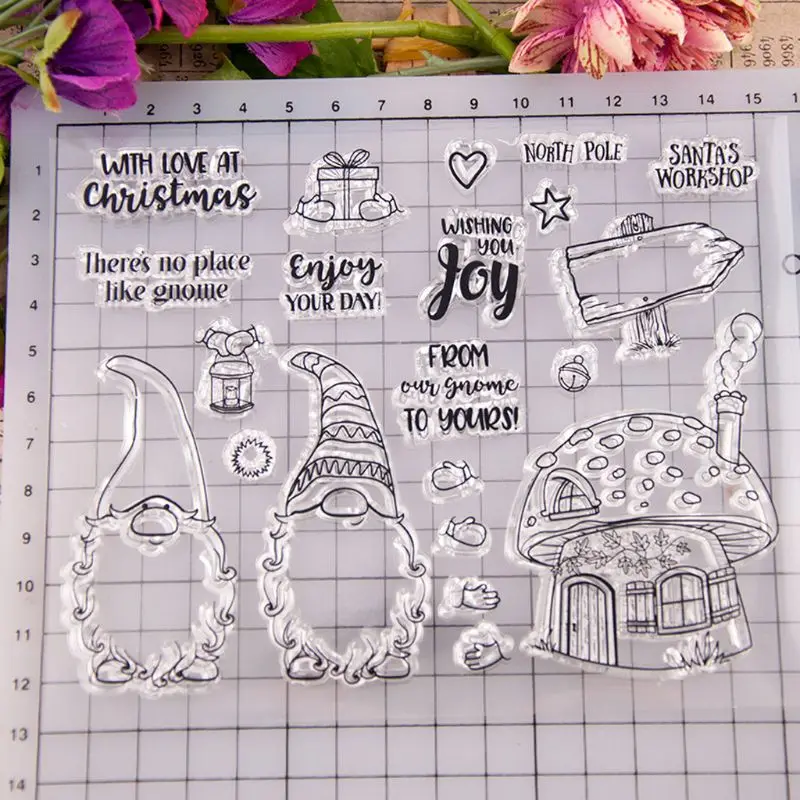 1 2 3 4 5 6 7 8 9 10 11 12 13 14 15
1
2
3
4
5
6
7
8
9
10
11
12
13
14
WITH LOVE AT
Christmas
NORTH POLE
SANTA'S
WORKSHOP
There's no place
like gnome
Enjoy
YOUR DAY!
WISHING
YOU
Joy
FROM
our gnome
TO YOURS!